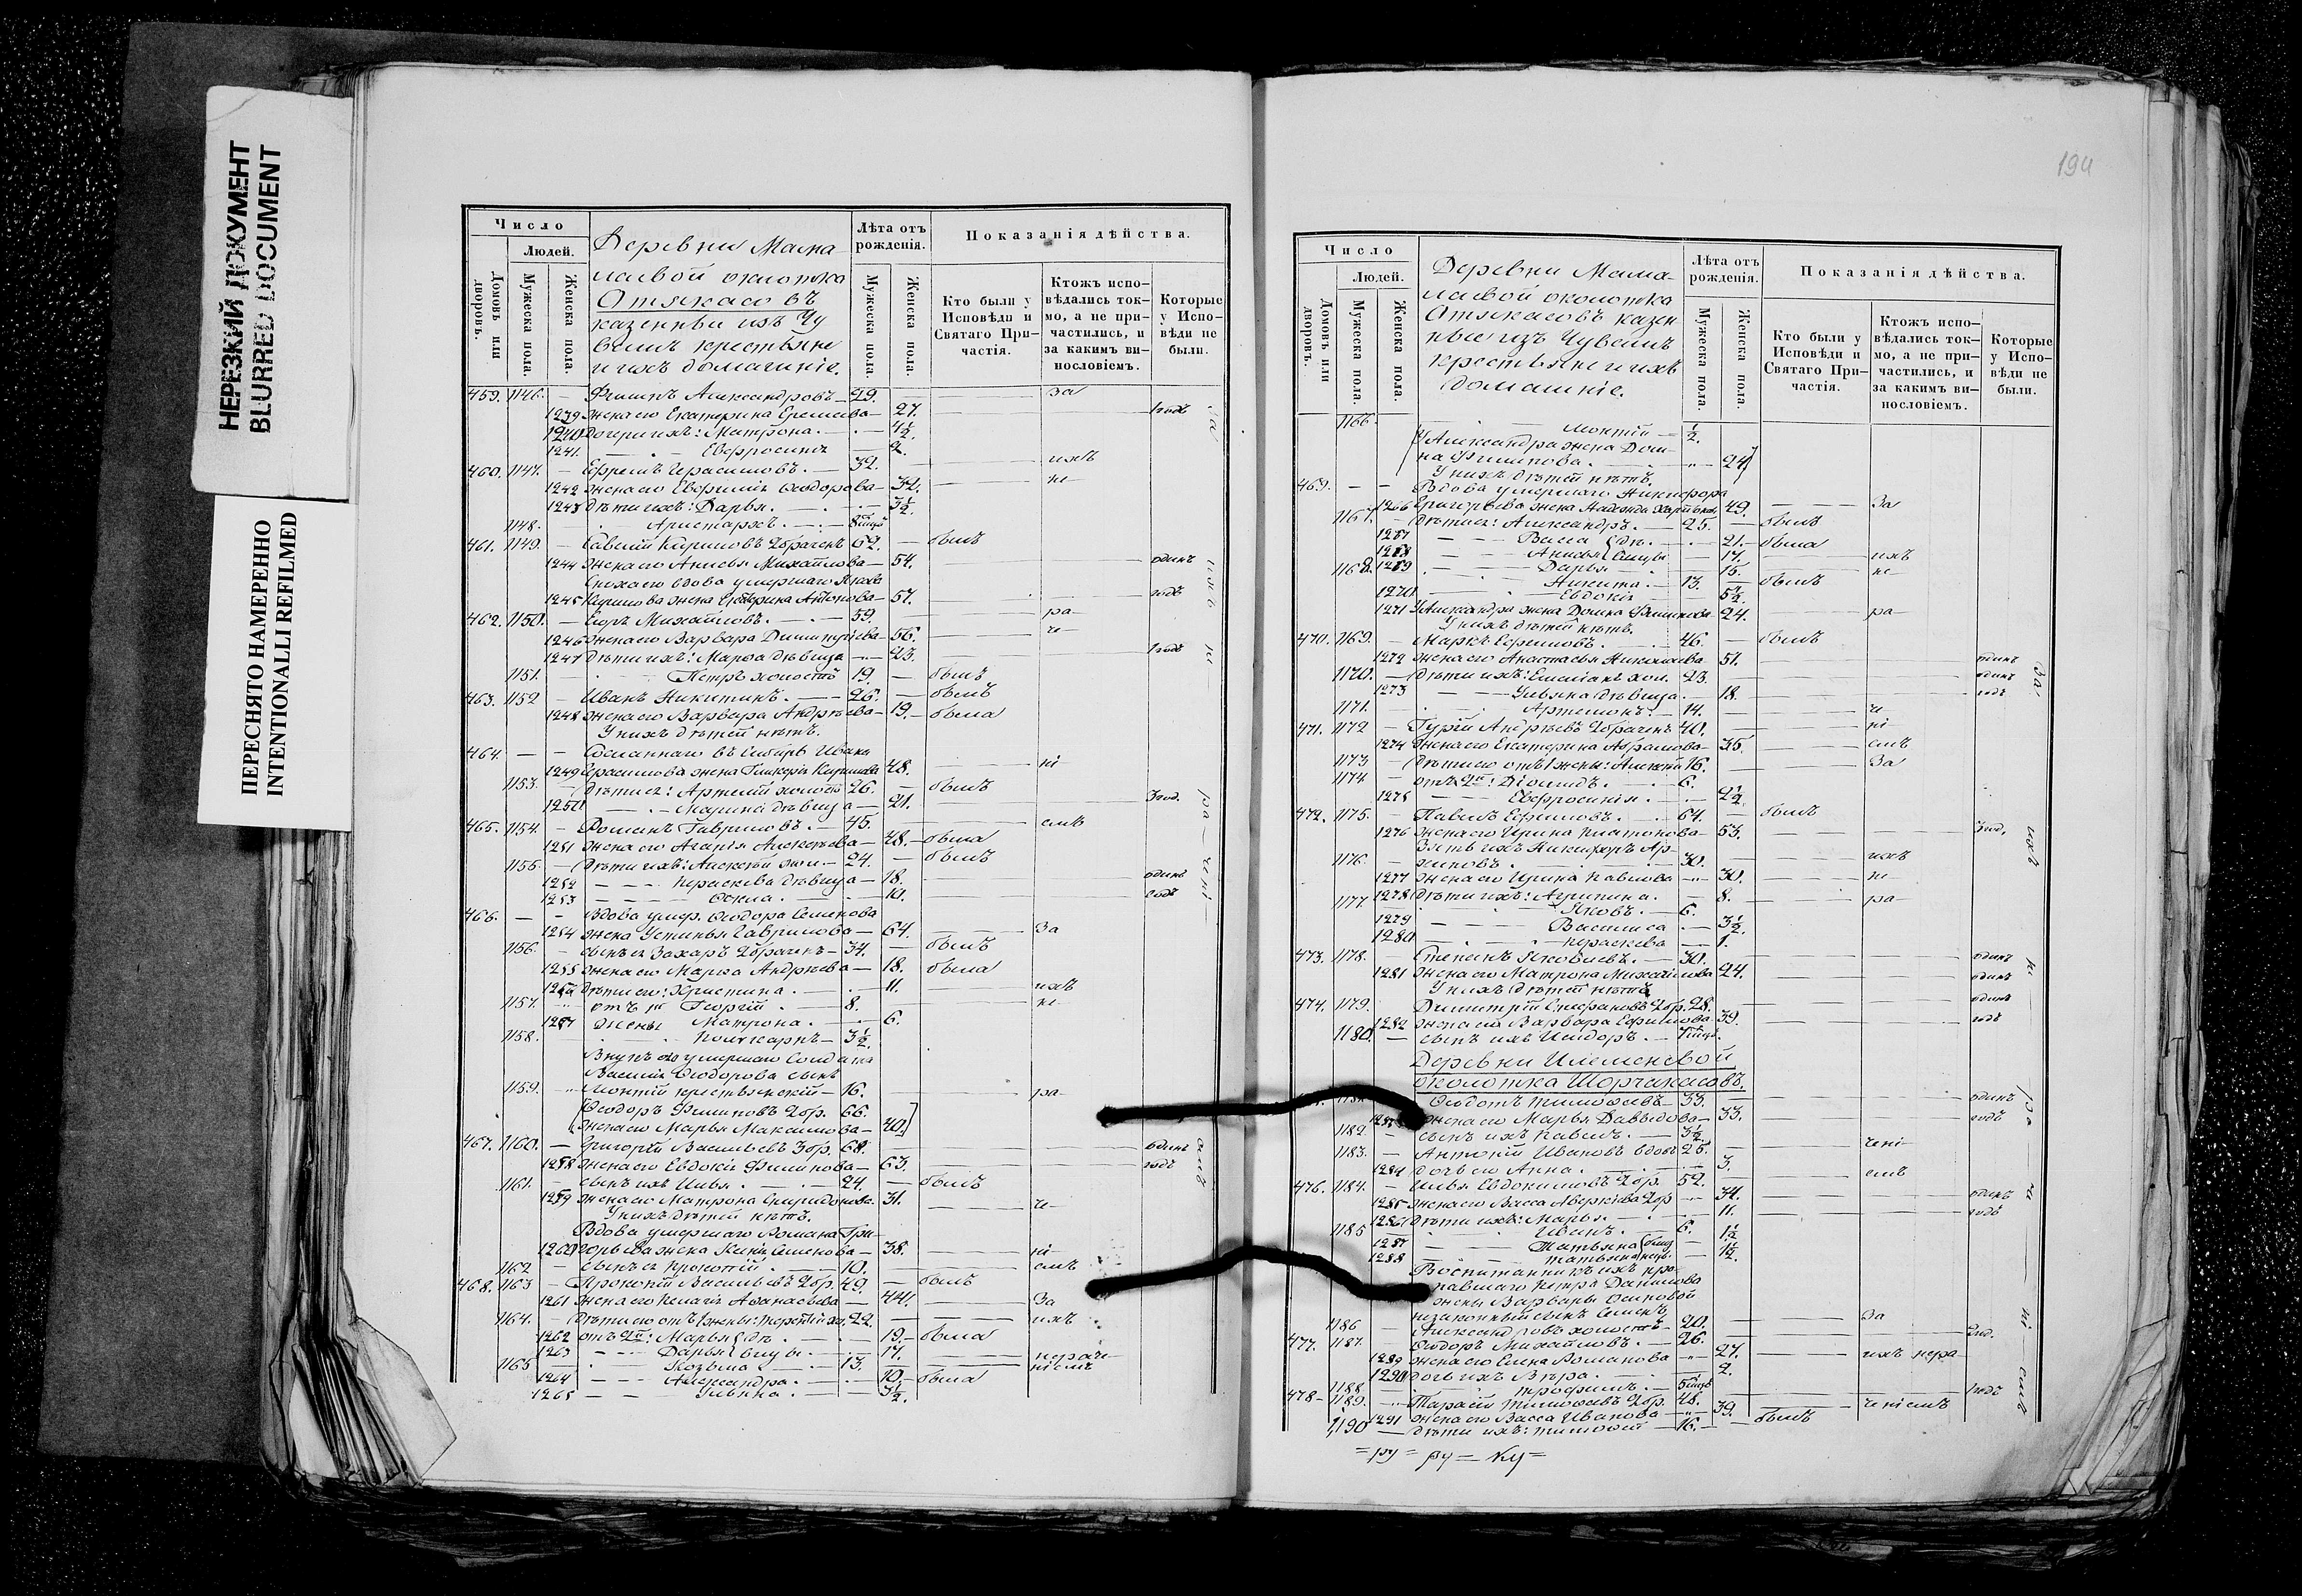 НЕРЕЗКИЙ ДОКУМЕНТ
BLURRED DOCUMENT
ПЕРЕСНЯТО НАМЕРЕННО
INTENTIONALLI REFILMED
Число
Людей.
Домовъ или дворовъ.
Мужеска пола.
Женска пола.
Деревни Мама
лаевой околотка
Отяжасовъ
казенные изъ Чу
вашъ крестьяне
и ихъ домашніе.
Лѣта отъ рожденія.
Мужеска пола.
Женска пола.
Показанія дѣйства.
Кто были у Исповѣди и Святаго При-частія.
Ктожъ испо-вѣдались ток-мо, а не при-частились, и за какимъ ви-нословіемъ.
Которые у Испо-вѣди не были.
459. 1146. — Филипъ Александровъ — 29. за
1239 жена его Екатерина — 27. 1 годъ
1240 дочери их: Матрона. — 4½.
1241. Евфросинія — 2.
460. 1147. — Ефремъ Герасимовъ. — 32. ихъ
1242 жена его Евфимія Ѳеодорова — 32. не
1243 дѣти ихъ: Дарья. — 3½.
1148. Аристархъ.
461. 1149. — Савелій Кириловъ 2браченъ 62. — былъ
1244 жена его Анисья Михайлова — 54. одинъ
вдова умершаго
1245 Кирилова жена Екатерина Антонова — 57. годъ
462. 1150. — Егоръ Михайловъ. — 59. ра
1246 жена его Варвара Димитріева — 56. че
1247 дѣти ихъ: Марѳа дѣвица — 23. 1 годъ
1151. Петръ холостъ 19. — былъ
463. 1152 — Иванъ Никитинъ. — 26. — былъ
1248 жена его Варвара Андреева — 19. — была
У нихъ дѣтей нѣтъ.
464. — — Сосланнаго въ Сибирь Ивана
1249 Герасимова жена Гликерія Кирилова 48. ні
1153. — дѣти ея: Артемій холостъ 26. — былъ
1250 Марина дѣвица — 21. 3 год.
465. 1154. — Романъ Гавриловъ. — 45. емъ
1251 жена его Агапія Алексѣева — 48. — была
1155. — дѣти ихъ: Алексѣй хол. — 24. — былъ
1252 Параскева дѣвица — 18. одинъ
1253 Ѳекла. — 10. годъ
466. — — Вдова умер. Ѳеодора Семенова
1254 жена Устинья Гаврилова — 64. За
1156. — сынъ ея Захаръ 2браченъ — 34. — былъ
1255 жена его Марѳа Андреева — 18. была
1256 дѣти его: Христина. — 11. ихъ
1157. отъ 1й Георгій — 8. не
1257 жены Матрона. — 6.
1158. Поликарпъ — 3½.
Внукъ его умершаго Солдата
Василія Ѳеодорова сынъ
1159. Моктій крестьянскій — 16. ра
Ѳеодоръ Филиповъ 2бр. 66.
жена его Марья Максимова — 40.
467. 1160. — Григорій Васильевъ 3бр. 68. одинъ
1258 жена его Евдокія Филипова — 63. годъ
1161. — сынъ ихъ Илья. — 24. — былъ
1259 жена его Матрона Спиридонова. 31. че
У нихъ дѣтей нѣтъ.
Вдова умершаго Романа Гри-
1260 горьева жена Семенова — 38. ні
1162 — сынъ ея Прокопій. — 10. емъ
468. 1163 — Прокопій Васильевъ 2бр. 49. — былъ
1261 жена его Пелагія Аѳанасьева — 44. За
1164. — дѣти его отъ 1 жены: Терентій хол. 22. ихъ
1262 отъ 2й: Марья дѣ — 19. — была
1263 Дарья вицы — 17.
1165 Козьма — 13.
1264 Александра. — 10. — была
1265 Ульяна. — 3½.
194
Число
Людей.
Домовъ или дворовъ.
Мужеска пола.
Женска пола.
Деревни Мама-
лаевой околотка
Отяжасовъ казен
ные изъ Чувашъ
крестьяне и ихъ
домашніе.
Лѣта отъ рожденія.
Мужеска пола.
Женска пола.
Показанія дѣйства.
Кто были у Исповѣди и Святаго При-частія.
Ктожъ испо-вѣдались ток-мо, а не при-частились, и за какимъ ви-нословіемъ.
Которые у Испо-вѣди не были.
1166. Моктій — ½.
У Александра жена Дом-
на Филипова. — 24
У нихъ дѣтей нѣтъ.
469. — — Вдова умершаго Никифора
1266 Григорьева жена Надежда 49. За
1167. дѣти ея: Александръ. — 25. — былъ
1267 Васса дѣ — 21. — была
1268 Анисья вицы — 17. ихъ
1269 Дарья — 15. не
1168. Никита. — 13. — былъ
1270 Евдокія — 5½
1271 У Александра жена Домна Филипова 24. ра
У нихъ дѣтей нѣтъ.
470. 1169. — Маркъ Ефремовъ. — 46. — былъ
1272 жена его Анастасья Николаева 51. одинъ
1170. — дѣти ихъ: Емеліанъ хол. 23. одинъ
1273 Ульяна дѣвица. — 18. годъ
1171. Артемонъ. — 14. че
471. 1172 — Гурій Андреевъ 2браченъ 40. ні
1274 жена его Екатерина Абрамова — 35. емъ
1173 — дѣти его отъ 1 жены: Алексѣй 16. За
1174 — отъ 2й: Діомидъ. — 6.
1275 Евфросинія. — 2½
472. 1175. — Павелъ Ефремовъ. — 64. — былъ
1276 жена его Ирина Платонова — 53. 3 год.
Зять ихъ Никифоръ Ар-
1176. — хиповъ. — 30. ихъ
1277 жена его Ирина Павлова — 30. не
1278 дѣти ихъ: Агрипина. — 8. ра
1177. Яковъ. — 6.
1279 Василиса — 3½.
1280 Параскева — 1.
473. 1178. — Степанъ Яковлевъ. — 30. одинъ
1281 жена его Матрона Михайлова 24. одинъ
У нихъ дѣтей нѣтъ
474. 1179. Димитрій Стефановъ 2бр. 28. одинъ
1282 жена его Варвара Ефимова — 39. годъ
1180. — сынъ ихъ Исидоръ. —
Деревни Илеменевой
околотка Шорчакасовъ.
Ѳедотъ Тимоѳеевъ — 33. одинъ
жена его Марья Давыдова — 33. годъ
1182 — сынъ ихъ Павелъ. — 3½.
1183. — Антоній Ивановъ вдовъ 25. чені
1284 дочь его Анна. — 3. емъ
476. 1184. — Илья Евдокимовъ 2бр. 52.
1285 жена его Васса Аверкіева 2бр — 34. одинъ
1286 дѣти ихъ: Марья. — 11. годъ
1185 Иванъ. — 6.
1287 Татьяна близ — 1½
1288 Татьяна нецы. — 1½.
Воспитанникъ ихъ про-
павшаго Петра Данилова
жены Варвары Осиповой
незаконный сынъ Семенъ
1186 — Александровъ холостъ — 20. За
477. 1187. Ѳедоръ Михайловъ. — 26. 2 год.
1289 жена его Елена Романова — 27. ихъ нера
1290 дочь ихъ Вѣра. — 2.
1188 Трофимъ. —
478 — 1189. Тарасій Тимоѳеевъ 2бр. 48. 1 годъ
1291 жена его Васса Иванова — 39. ченіемъ
1190 — дѣти ихъ: Тимоѳей — 16. — былъ